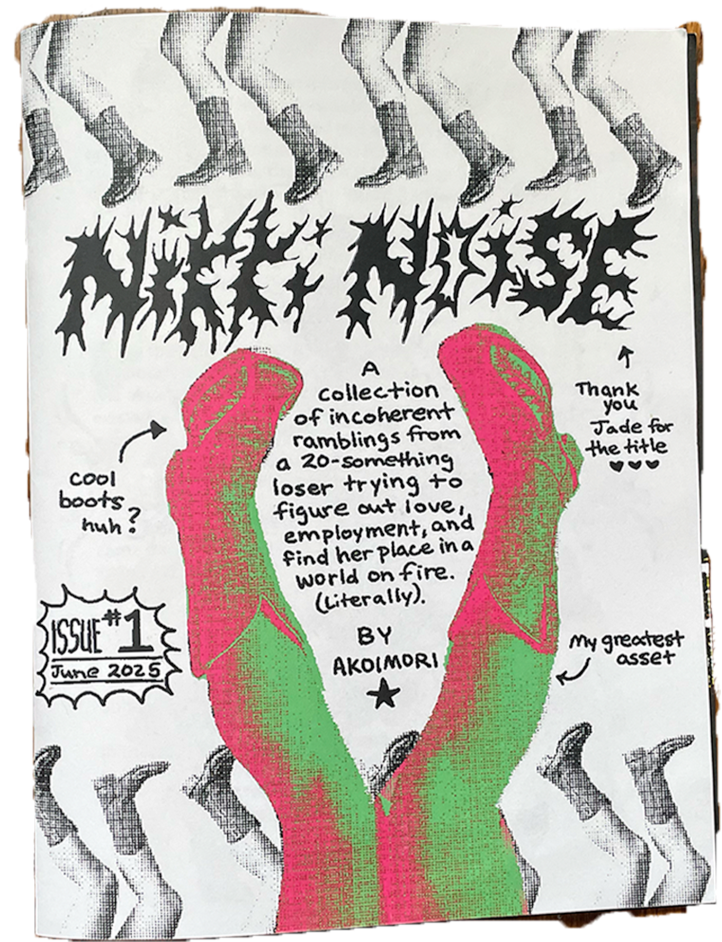 NiKKi NOiSE
A
collection
of incoherent
ramblings from
a 20-something
loser trying to
figure out love,
employment, and
find her place in a
world on fire.
(Literally).
BY
AKOIMORI
★
Thank
you
Jade for
the title
♥♥♥
cool
boots
huh?
ISSUE #1
June 2025
My greatest
asset